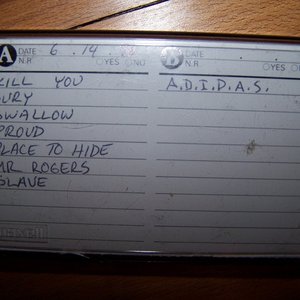 A DATE 6 . 14 .
N.R. YES NO
KILL YOU
URY
SWALLOW
PROUD
PLACE TO HIDE
MR ROGERS
SLAVE
B DATE . .
N.R. YES
A.D.I.D.A.S.